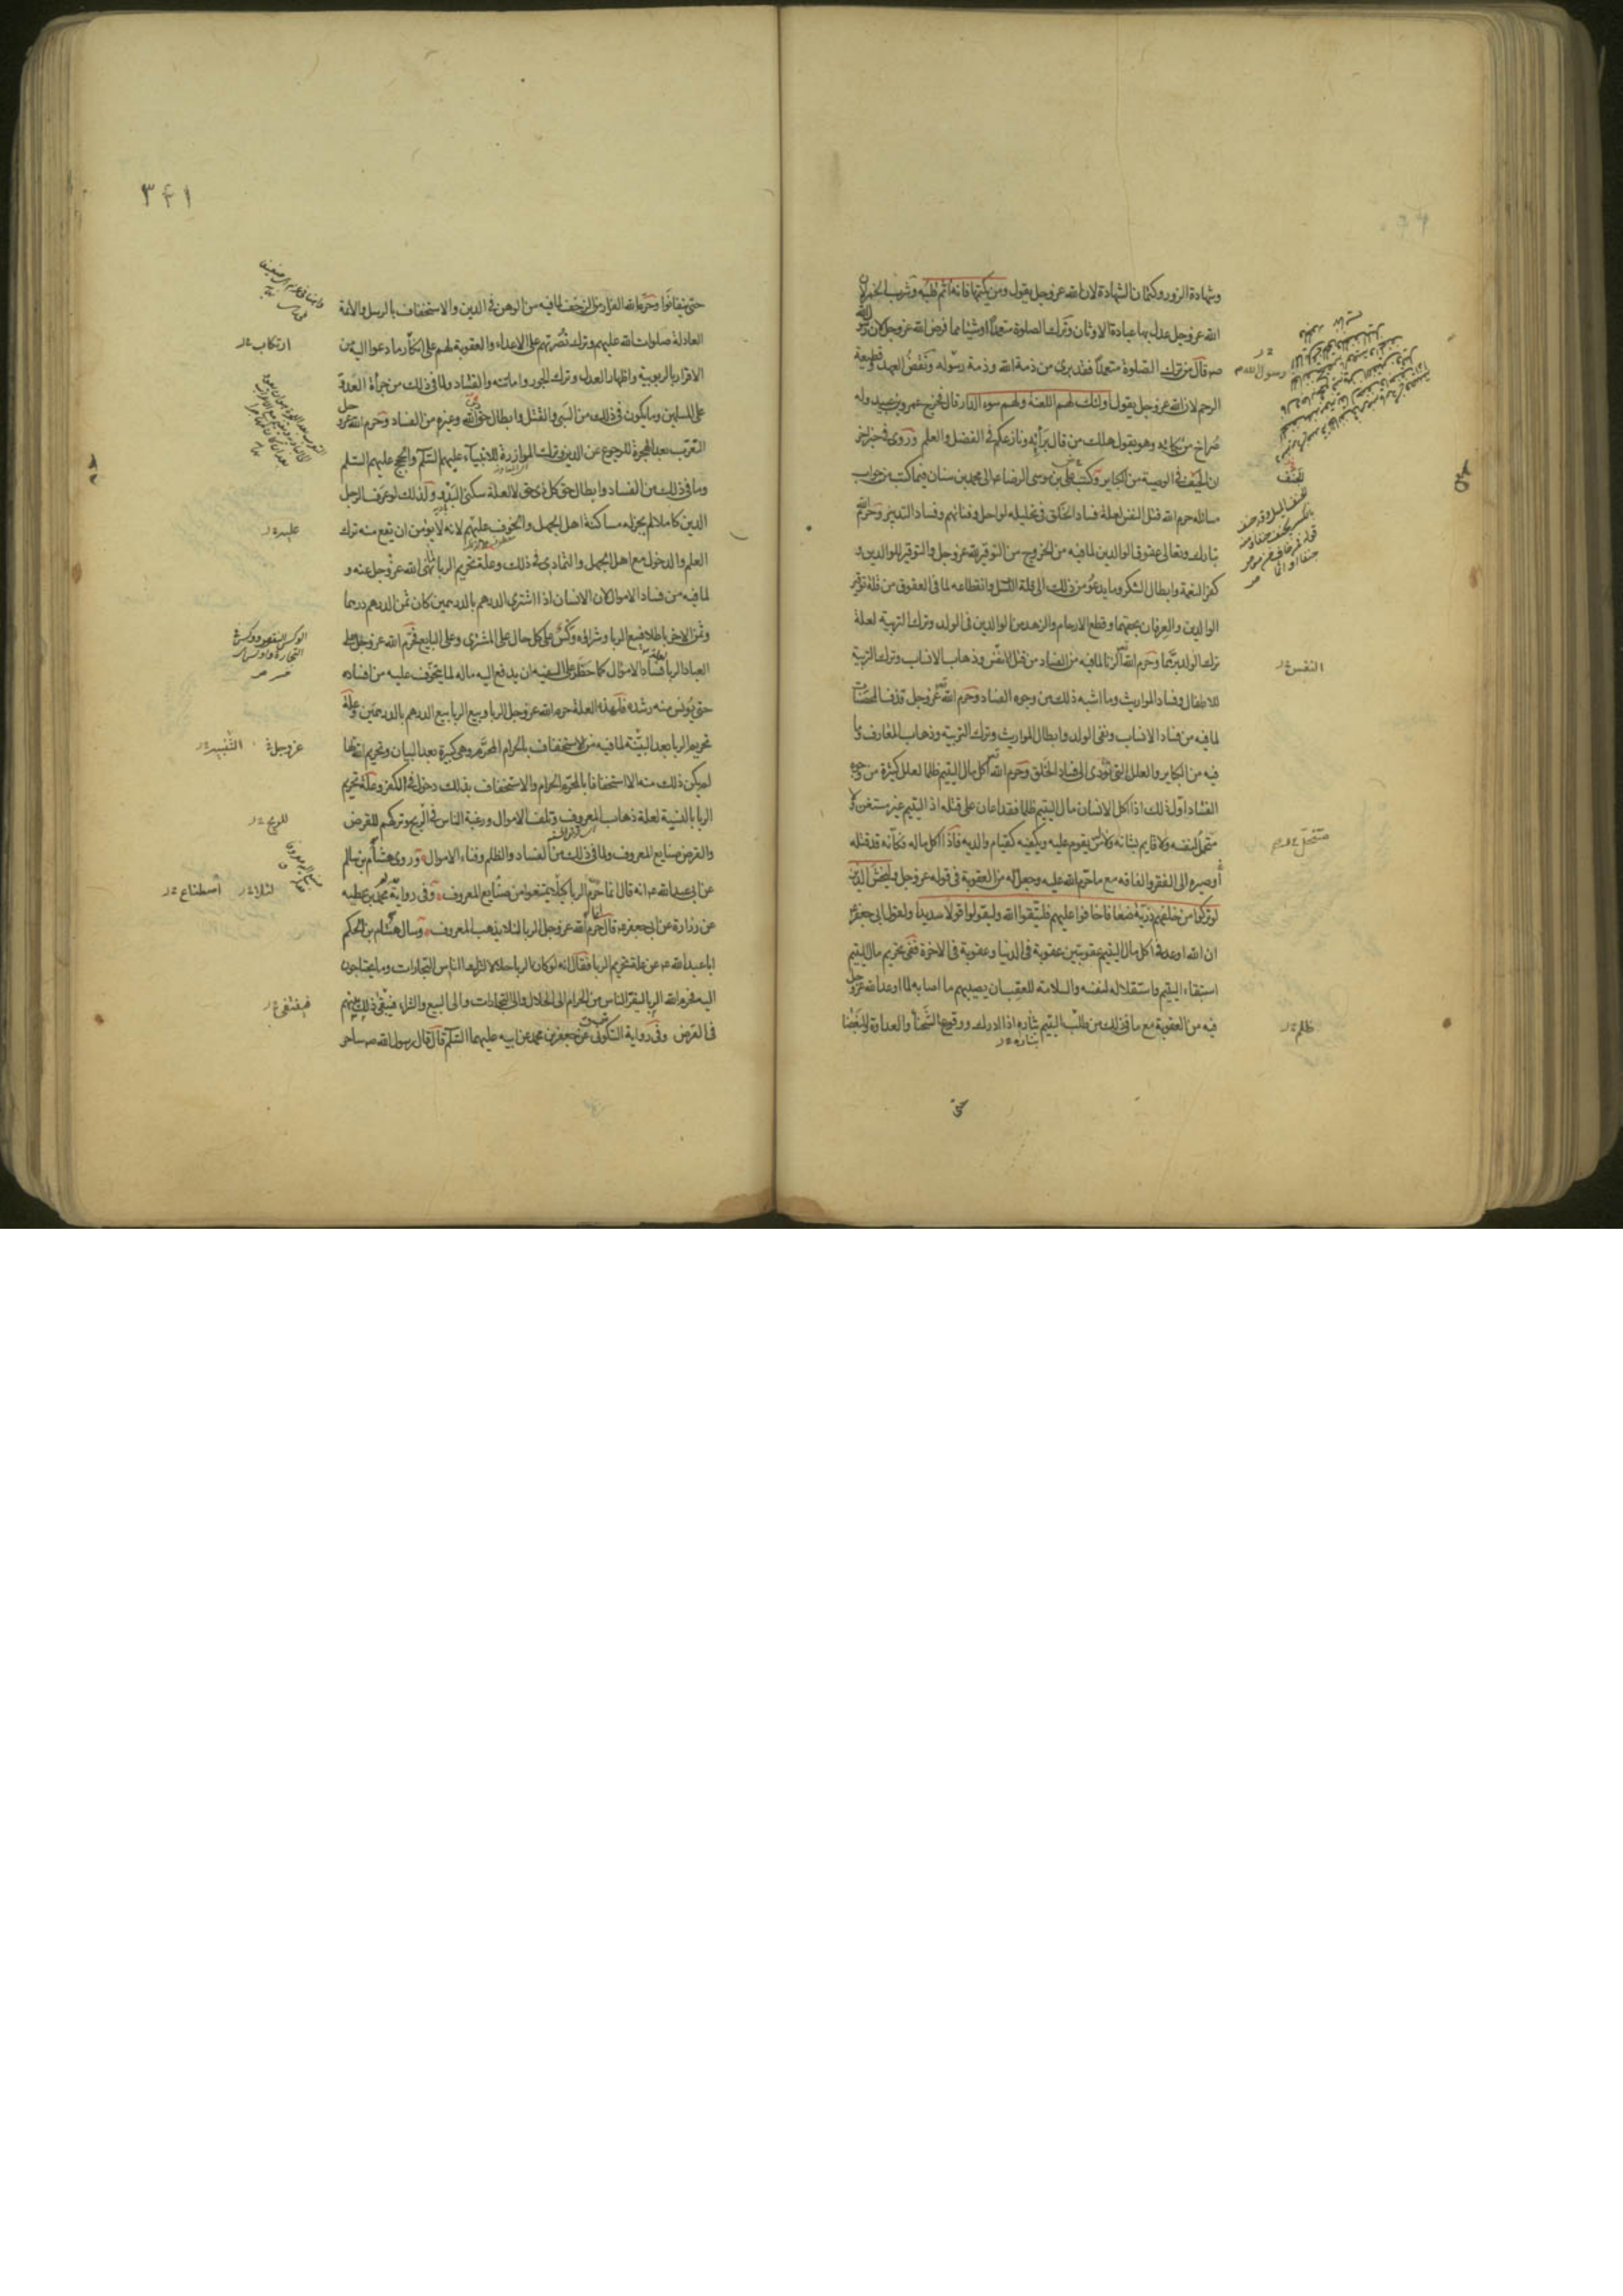 وشهادة الزور وكتمان الشهادة لان الله عز وجل يقول ومن يكتمها فانه اثم قلبه وشرب الخمر لان
الله عز وجل عدل بها عبادة الاوثان وترك الصلوة متعمدا او شيئا مما فرض الله عز وجل لان رسول الله
صه قال من ترك الصلوة متعمدا فقد برئ من ذمة الله وذمة رسوله ونقض العهد وقطيعة
الرحم لان الله عز وجل يقول اولئك لهم اللعنة ولهم سوء الدار قال فخرج عمرو بن عبيد وله
صراخ من بكائه وهو يقول هلك من قال برأيه ونازعكم في الفضل والعلم وروى في خبر اخر
ان الحيف في الوصية من الكباير وكتب علي بن موسى الرضا ع الى محمد بن سنان فيما كتب من جواب
مسائله حرم الله قتل النفس لعلة فساد الخلق في تحليله لو احل وفنائهم وفساد التدبير وحرم الله
تبارك وتعالى عقوق الوالدين لما فيه من الخروج من التوقير لله عز وجل والتوقير للوالدين و
كفر النعمة وابطال الشكر وما يدعو من ذلك الى قلة النسل وانقطاعه لما في العقوق من قلة توقير
الوالدين والعرفان بحقهما وقطع الارحام والزهد من الوالدين في الولد وترك التربية لعلة
ترك الولد برهما وحرم الله تعالى الزنا لما فيه من الفساد من قتل الانفس وذهاب الانساب وترك التربية
للاطفال وفساد المواريث وما اشبه ذلك من وجوه الفساد وحرم الله عز وجل قذف المحصنات
لما فيه من فساد الانساب ونفي الولد وابطال المواريث وترك التربية وذهاب المعارف وما
فيه من الكباير والعلل التي تؤدى الى فساد الخلق وحرم الله اكل مال اليتيم ظلما لعلل كثيرة من وجوه
الفساد اول ذلك اذا اكل الانسان مال اليتيم ظلما فقد اعان على قتله اذ اليتيم غير مستغن ولا
متحمل لنفسه ولا قايم بشانه ولا له من يقوم عليه ويكفيه كقيام والديه فاذا اكل ماله فكانه قد قتله
او صيره الى الفقر والفاقه مع ما حرم الله عليه وجعل له من العقوبة في قوله عز وجل وليخش الذين
لو تركوا من خلفهم ذرية ضعافا خافوا عليهم فليتقوا الله وليقولوا قولا سديدا ولقول ابي جعفر ع
ان الله اوعد في اكل مال اليتيم عقوبتين عقوبة في الدنيا وعقوبة في الاخرة ففي تحريم مال اليتيم
استبقاء اليتيم واستقلاله لنفسه والسلامة للعقب ان يصيبهم ما اصابه لما اوعد الله عز وجل
فيه من العقوبة مع ما في ذلك من طلب اليتيم بثاره اذا ادرك ووقوع الشحنا والعداوة والبغضا
حتى
رسول الله ص
النفس
ظلم
٣٤١
حتى يتفانوا وحرم الله الفرار من الزحف لما فيه من الوهن في الدين والاستخفاف بالرسل والائمة
العادلة صلوات الله عليهم وترك نصرتهم على الاعداء والعقوبة لهم على انكار ما دعوا اليه من
الاقرار بالربوبية واظهار العدل وترك الجور واماتته والفساد ولما في ذلك من جرأة العدو
على المسلمين وما يكون في ذلك من السبي والقتل وابطال حق الله وغيره من الفساد وحرم الله عز وجل
التعرب بعد الهجرة للرجوع عن الدين وترك الموازرة للانبياء عليهم السلم والحجج عليهم السلم
وما في ذلك من الفساد وابطال حق كل ذي حق لا لعلة سكنى البدو ولذلك لو عرف الرجل
الدين كاملا لم يجز له مساكنة اهل الجهل والخوف عليهم لانه لا يؤمن ان يقع منه ترك
العلم والدخول مع اهل الجهل والتمادي في ذلك وعلة تحريم الربا لما نهى الله عز وجل عنه و
لما فيه من فساد الاموال لان الانسان اذا اشترى الدرهم بالدرهمين كان ثمن الدرهم درهما
وثمن الاخر باطلا فبيع الربا وشراؤه وكس على كل حال على المشترى وعلى البايع فحرم الله عز وجل على
العباد الربا لعلة فساد الاموال كما حظر على السفيه ان يدفع اليه ماله لما يتخوف عليه من افساده
حتى يؤنس منه رشده فلهذه العلة حرم الله عز وجل الربا وبيع الربا بيع الدرهم بالدرهمين وعلة
تحريم الربا بعد البينة لما فيه من الاستخفاف بالحرام المحرم وهي كبيرة بعد البيان وتحريم الله لها
لم يكن ذلك منه الا استخفافا بالمحرم الحرام والاستخفاف بذلك دخول في الكفر وعلة تحريم
الربا بالنسية لعلة ذهاب المعروف وتلف الاموال ورغبة الناس في الربح وتركهم للقرض
والقرض صنايع المعروف ولما في ذلك من الفساد والظلم وفناء الاموال وروى هشام بن سالم
عن ابي عبد الله ع انه قال انما حرم الربا كيلا يمتنعوا من صنايع المعروف وفي رواية محمد بن عطيه
عن زرارة عن ابي جعفر ع قال انما حرم الله عز وجل الربا لئلا يذهب المعروف وسال هشام بن الحكم
ابا عبد الله ع عن علة تحريم الربا فقال انه لو كان الربا حلالا لترك الناس التجارات وما يحتاجون
اليه فحرم الله الربا ليفر الناس من الحرام الى الحلال والى التجارات والى البيع والشراء فيبقى ذلك بينهم
في القرض وفي رواية السكوني عن جعفر بن محمد عن ابيه عليهما السلم قال قال رسول الله صه ساحر
ارتكاب
عليه
عز وجل
للربح
لئلا
اصطناع